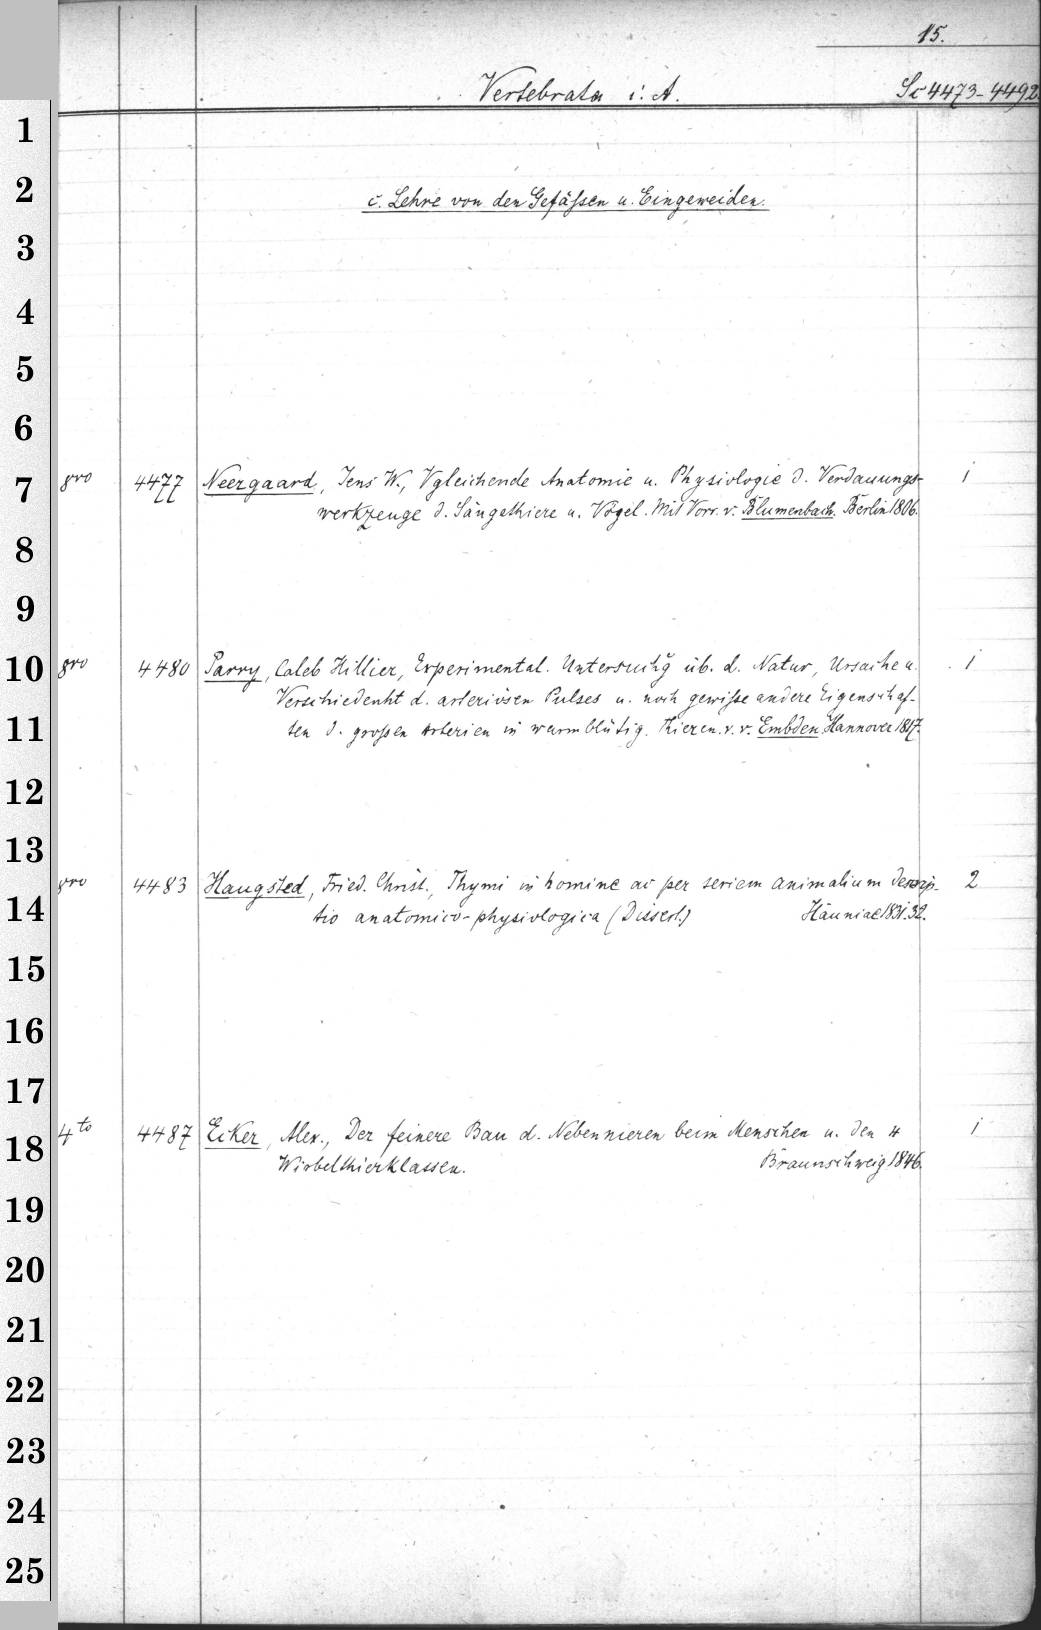 15.
Vertebrata i. A.
Sc 4473-4492.
c. Lehre von den Gefässen u. Eingeweiden.
1
2
3
4
5
6
7
8vo 4477 Neergaard, Jens W., Vgleichende Anatomie u. Physiologie d. Verdauungs- 1
werkzeuge d. Säugethiere u. Vögel. Mit Vorr. v. Blumenbach. Berlin 1806.
8
9
10
8vo 4480 Parry, Caleb Hillier, Experimental. Untersuchg üb. d. Natur, Ursache u. 1
Verschiedenht d. arteriösen Pulses u. noch gewisse andere Eigenschaf-
11
ten d. grossen Arterien in warmblütig. Thieren. v. v. Embden Hannover 1817.
12
13
8vo 4483 Haugsted, Fried. Christ., Thymi in homine ac per seriem animalium descrip- 2
14
tio anatomico-physiologica (Dissert.) Hauniae 1831.32.
15
16
17
18
4to 4487 Ecker, Alex., Der feinere Bau d. Nebennieren beim Menschen u. den 4 1
Wirbelthierklassen. Braunschweig 1846.
19
20
21
22
23
24
25